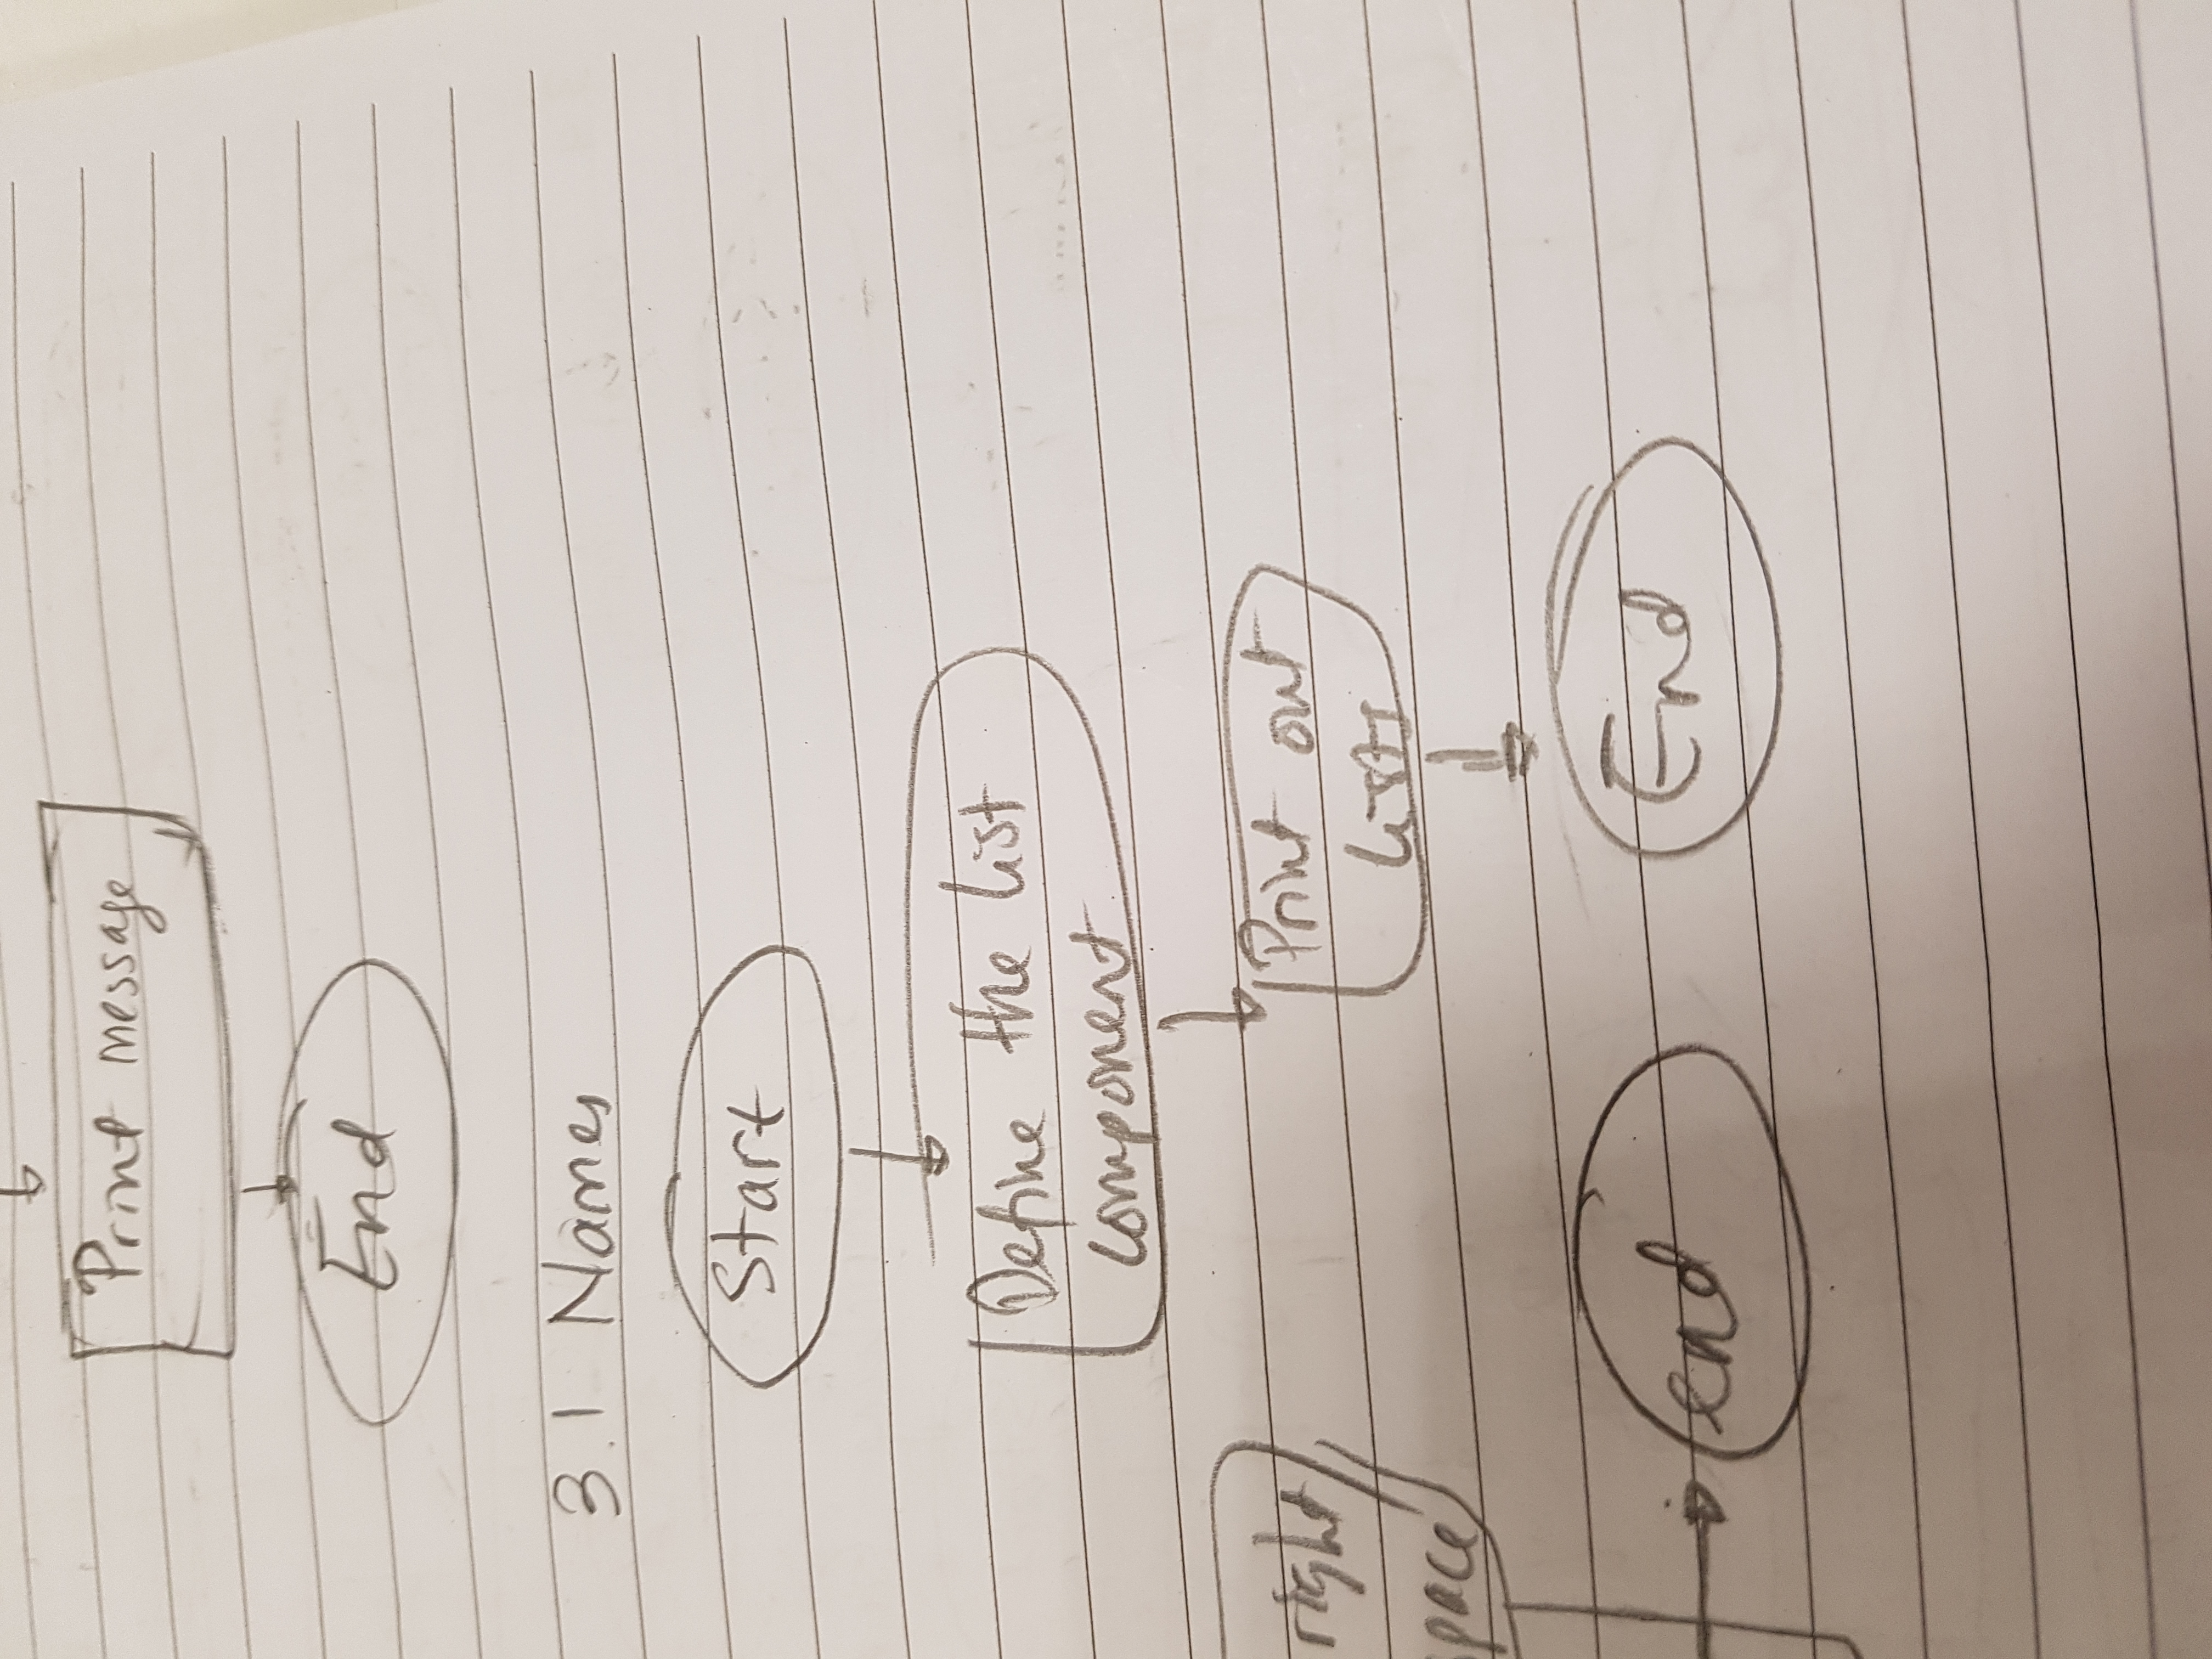 Print message
End
3.1 Names
Start
Define the list
component
Print out
lists
right
space
end
End